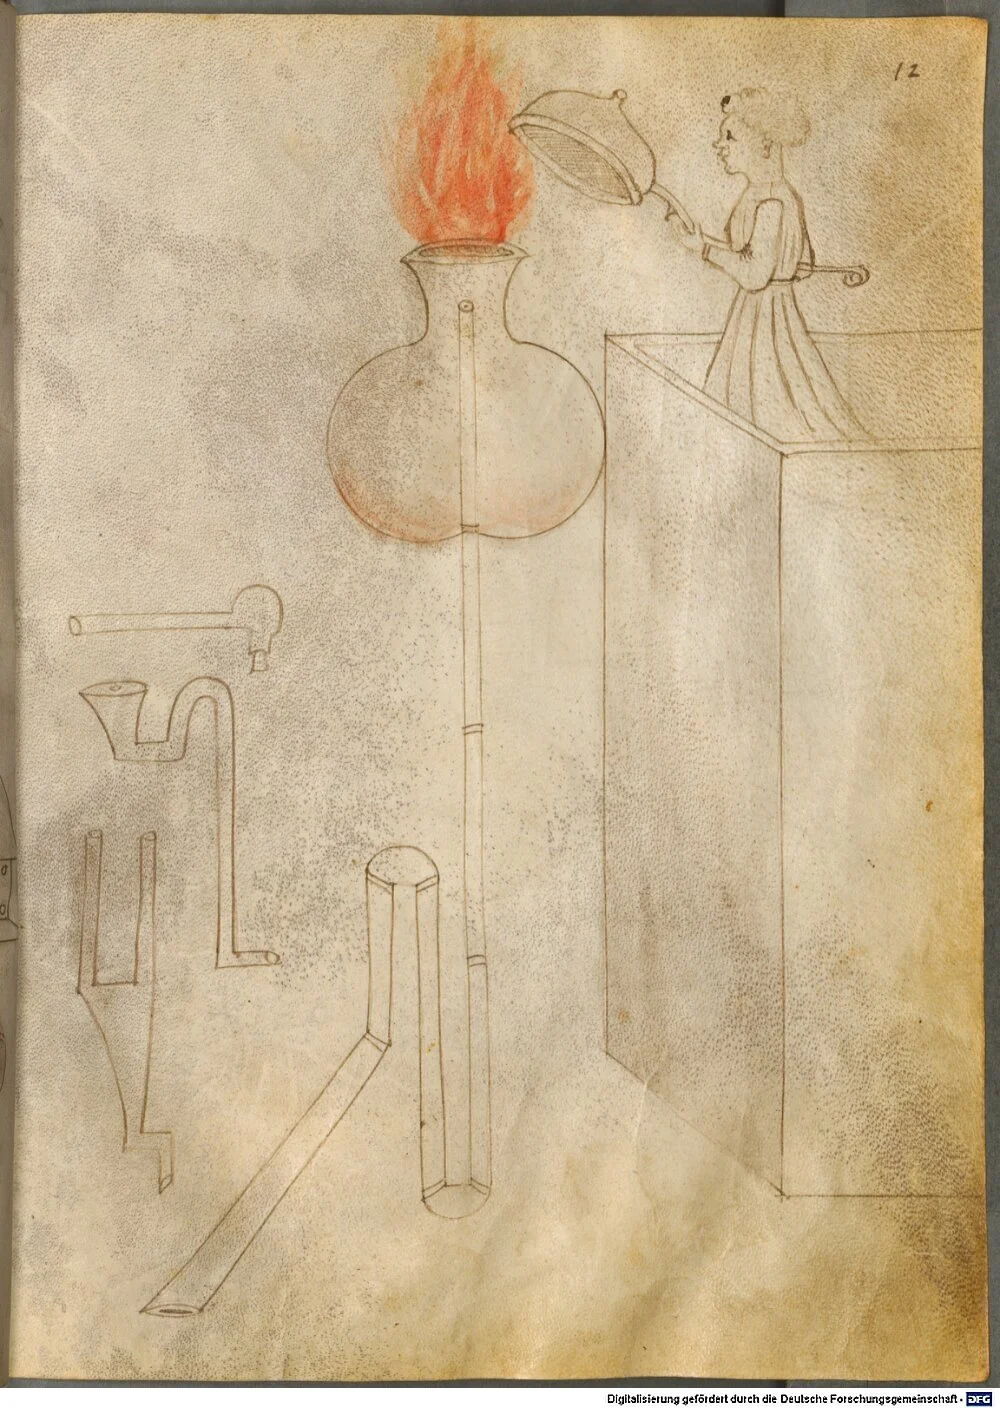 12
Digitalisierung gefördert durch die Deutsche Forschungsgemeinschaft - DFG